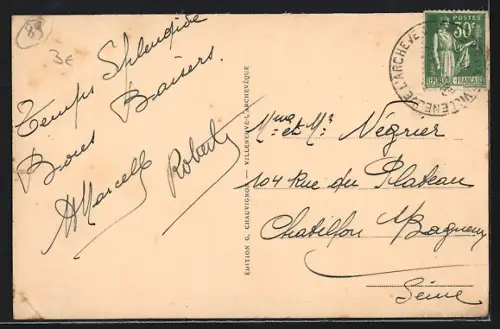 89
3€
Temps Splendide
Bons Baisers.
Marcelle
Robert
ÉDITION G. CHAUVIGNON — VILLENEUVE-L'ARCHEVÊQUE
POSTES
30c
VILLENEUVE L'ARCHEVÊQUE
Mme et Mr Négrier
104 Rue du Plateau
Chatillon s/Bagneux
Seine